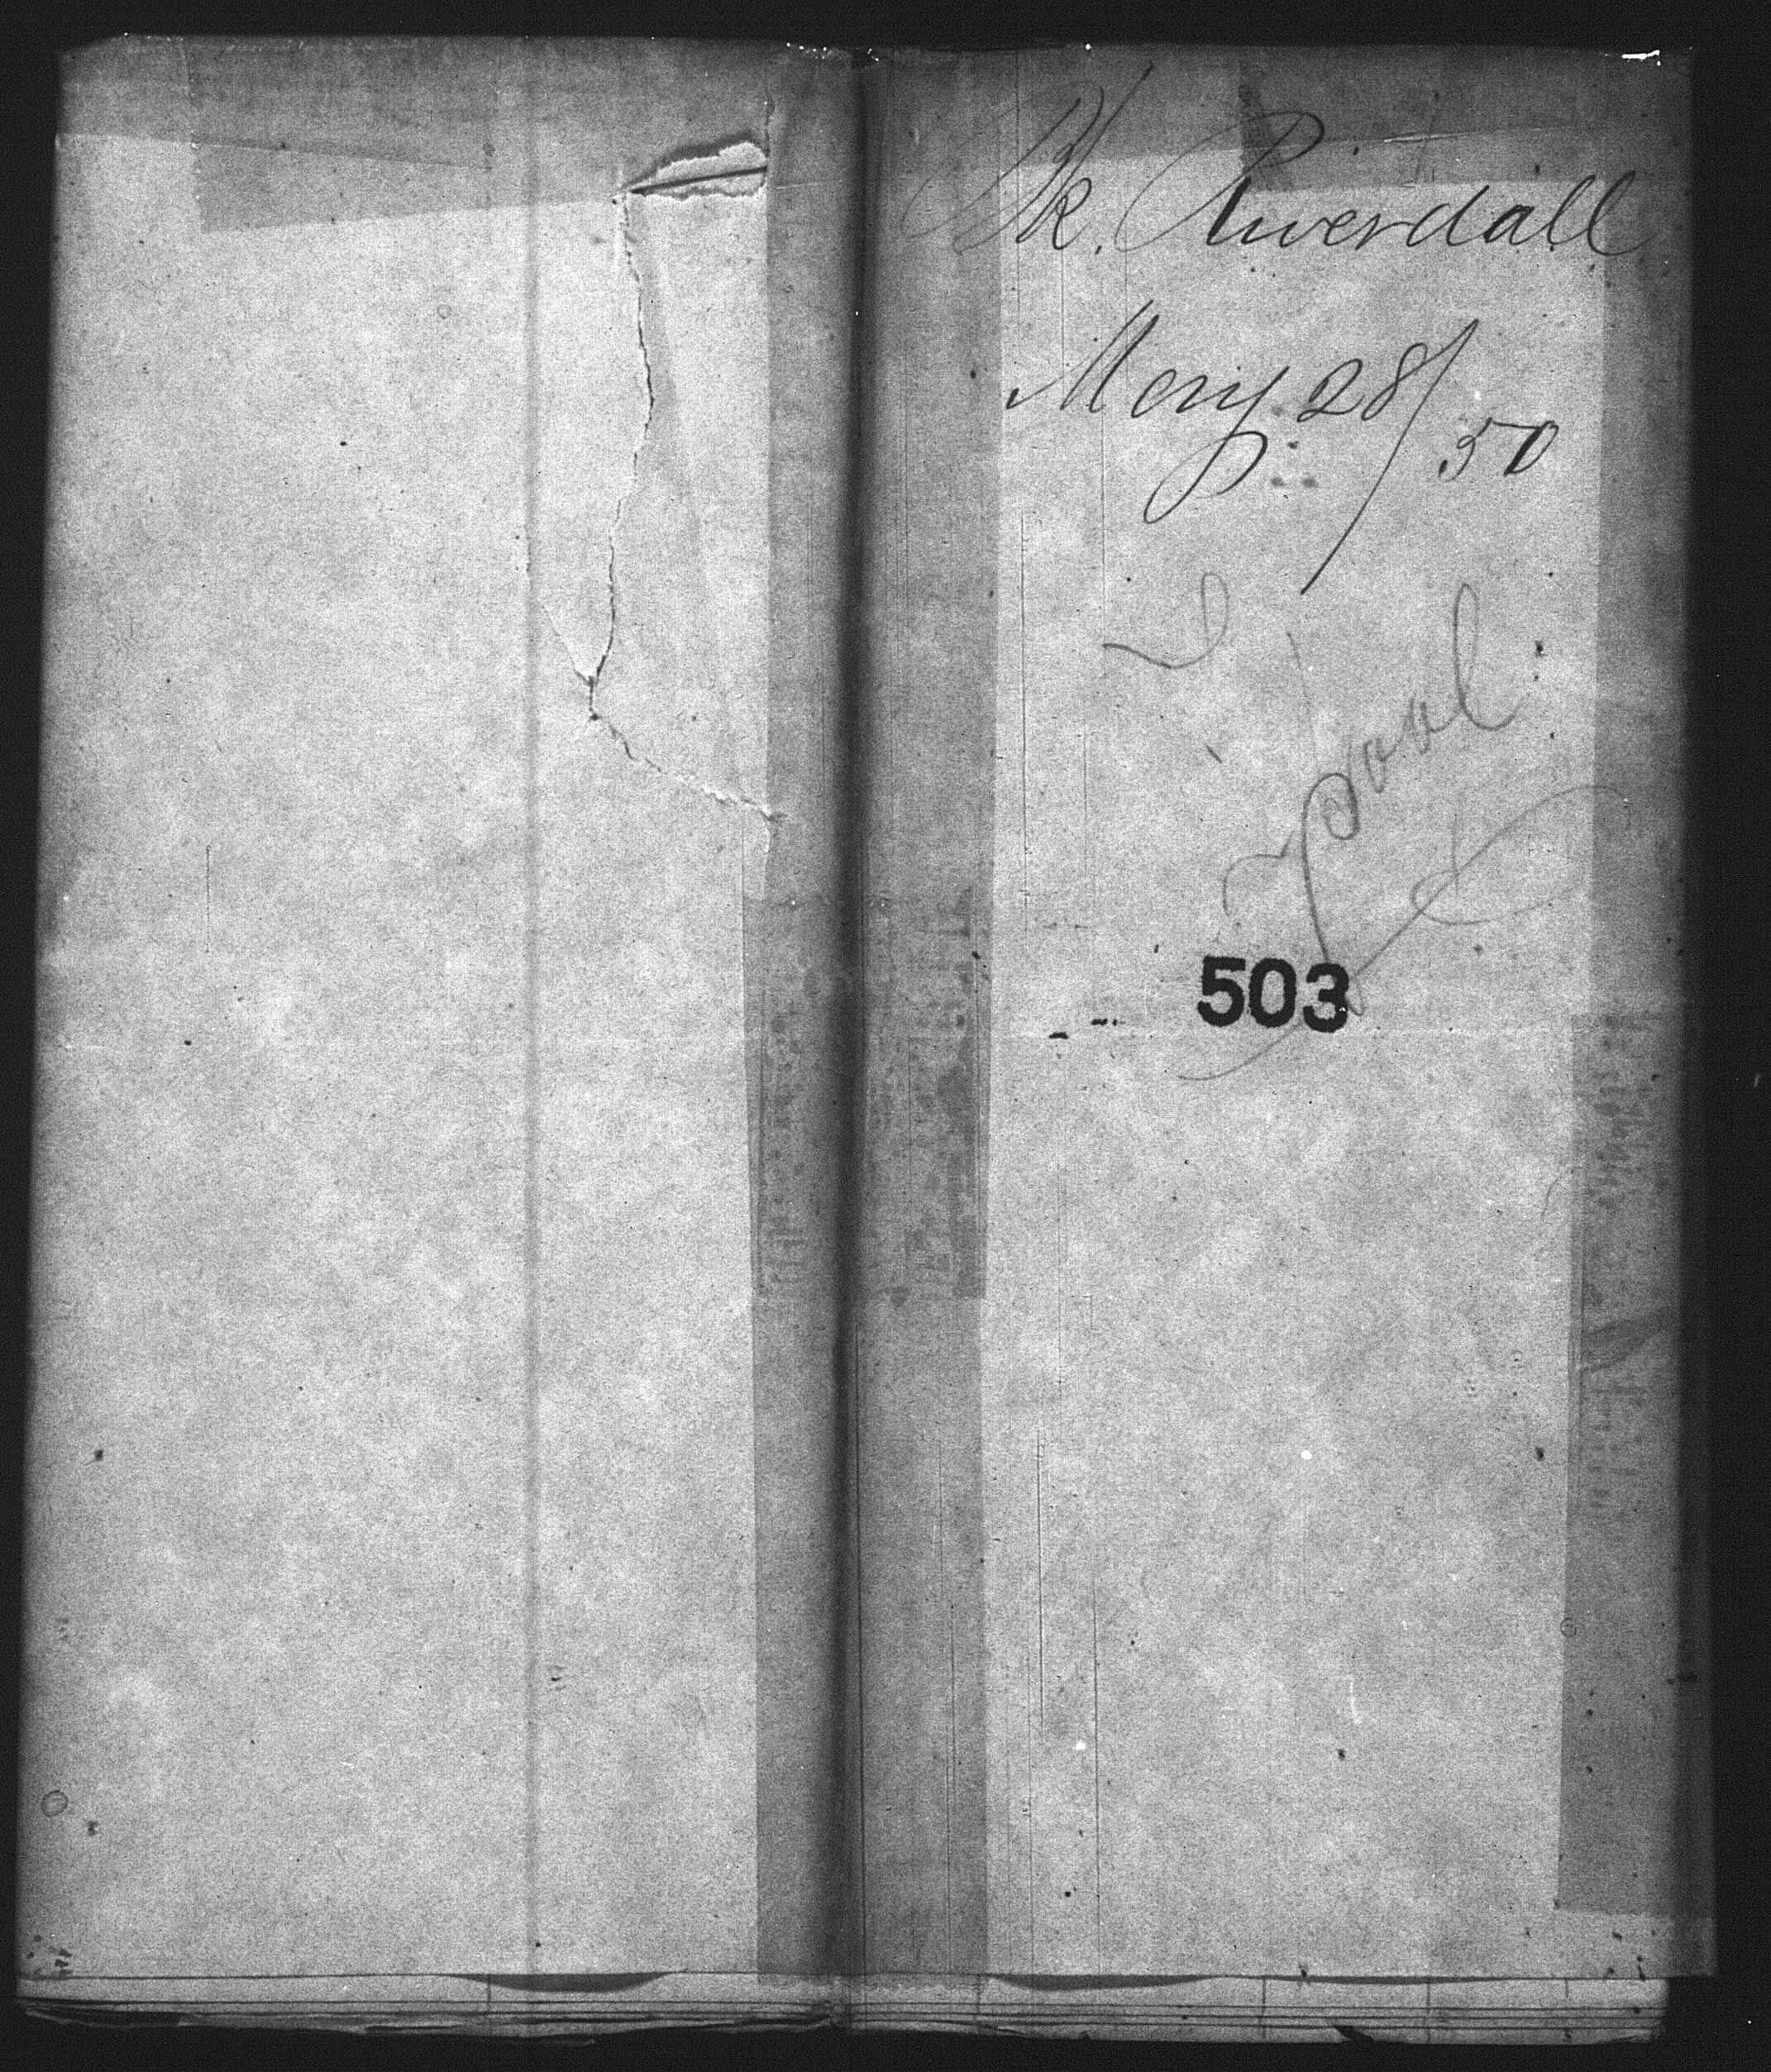 Bk. Riverdall
May 28/50
503